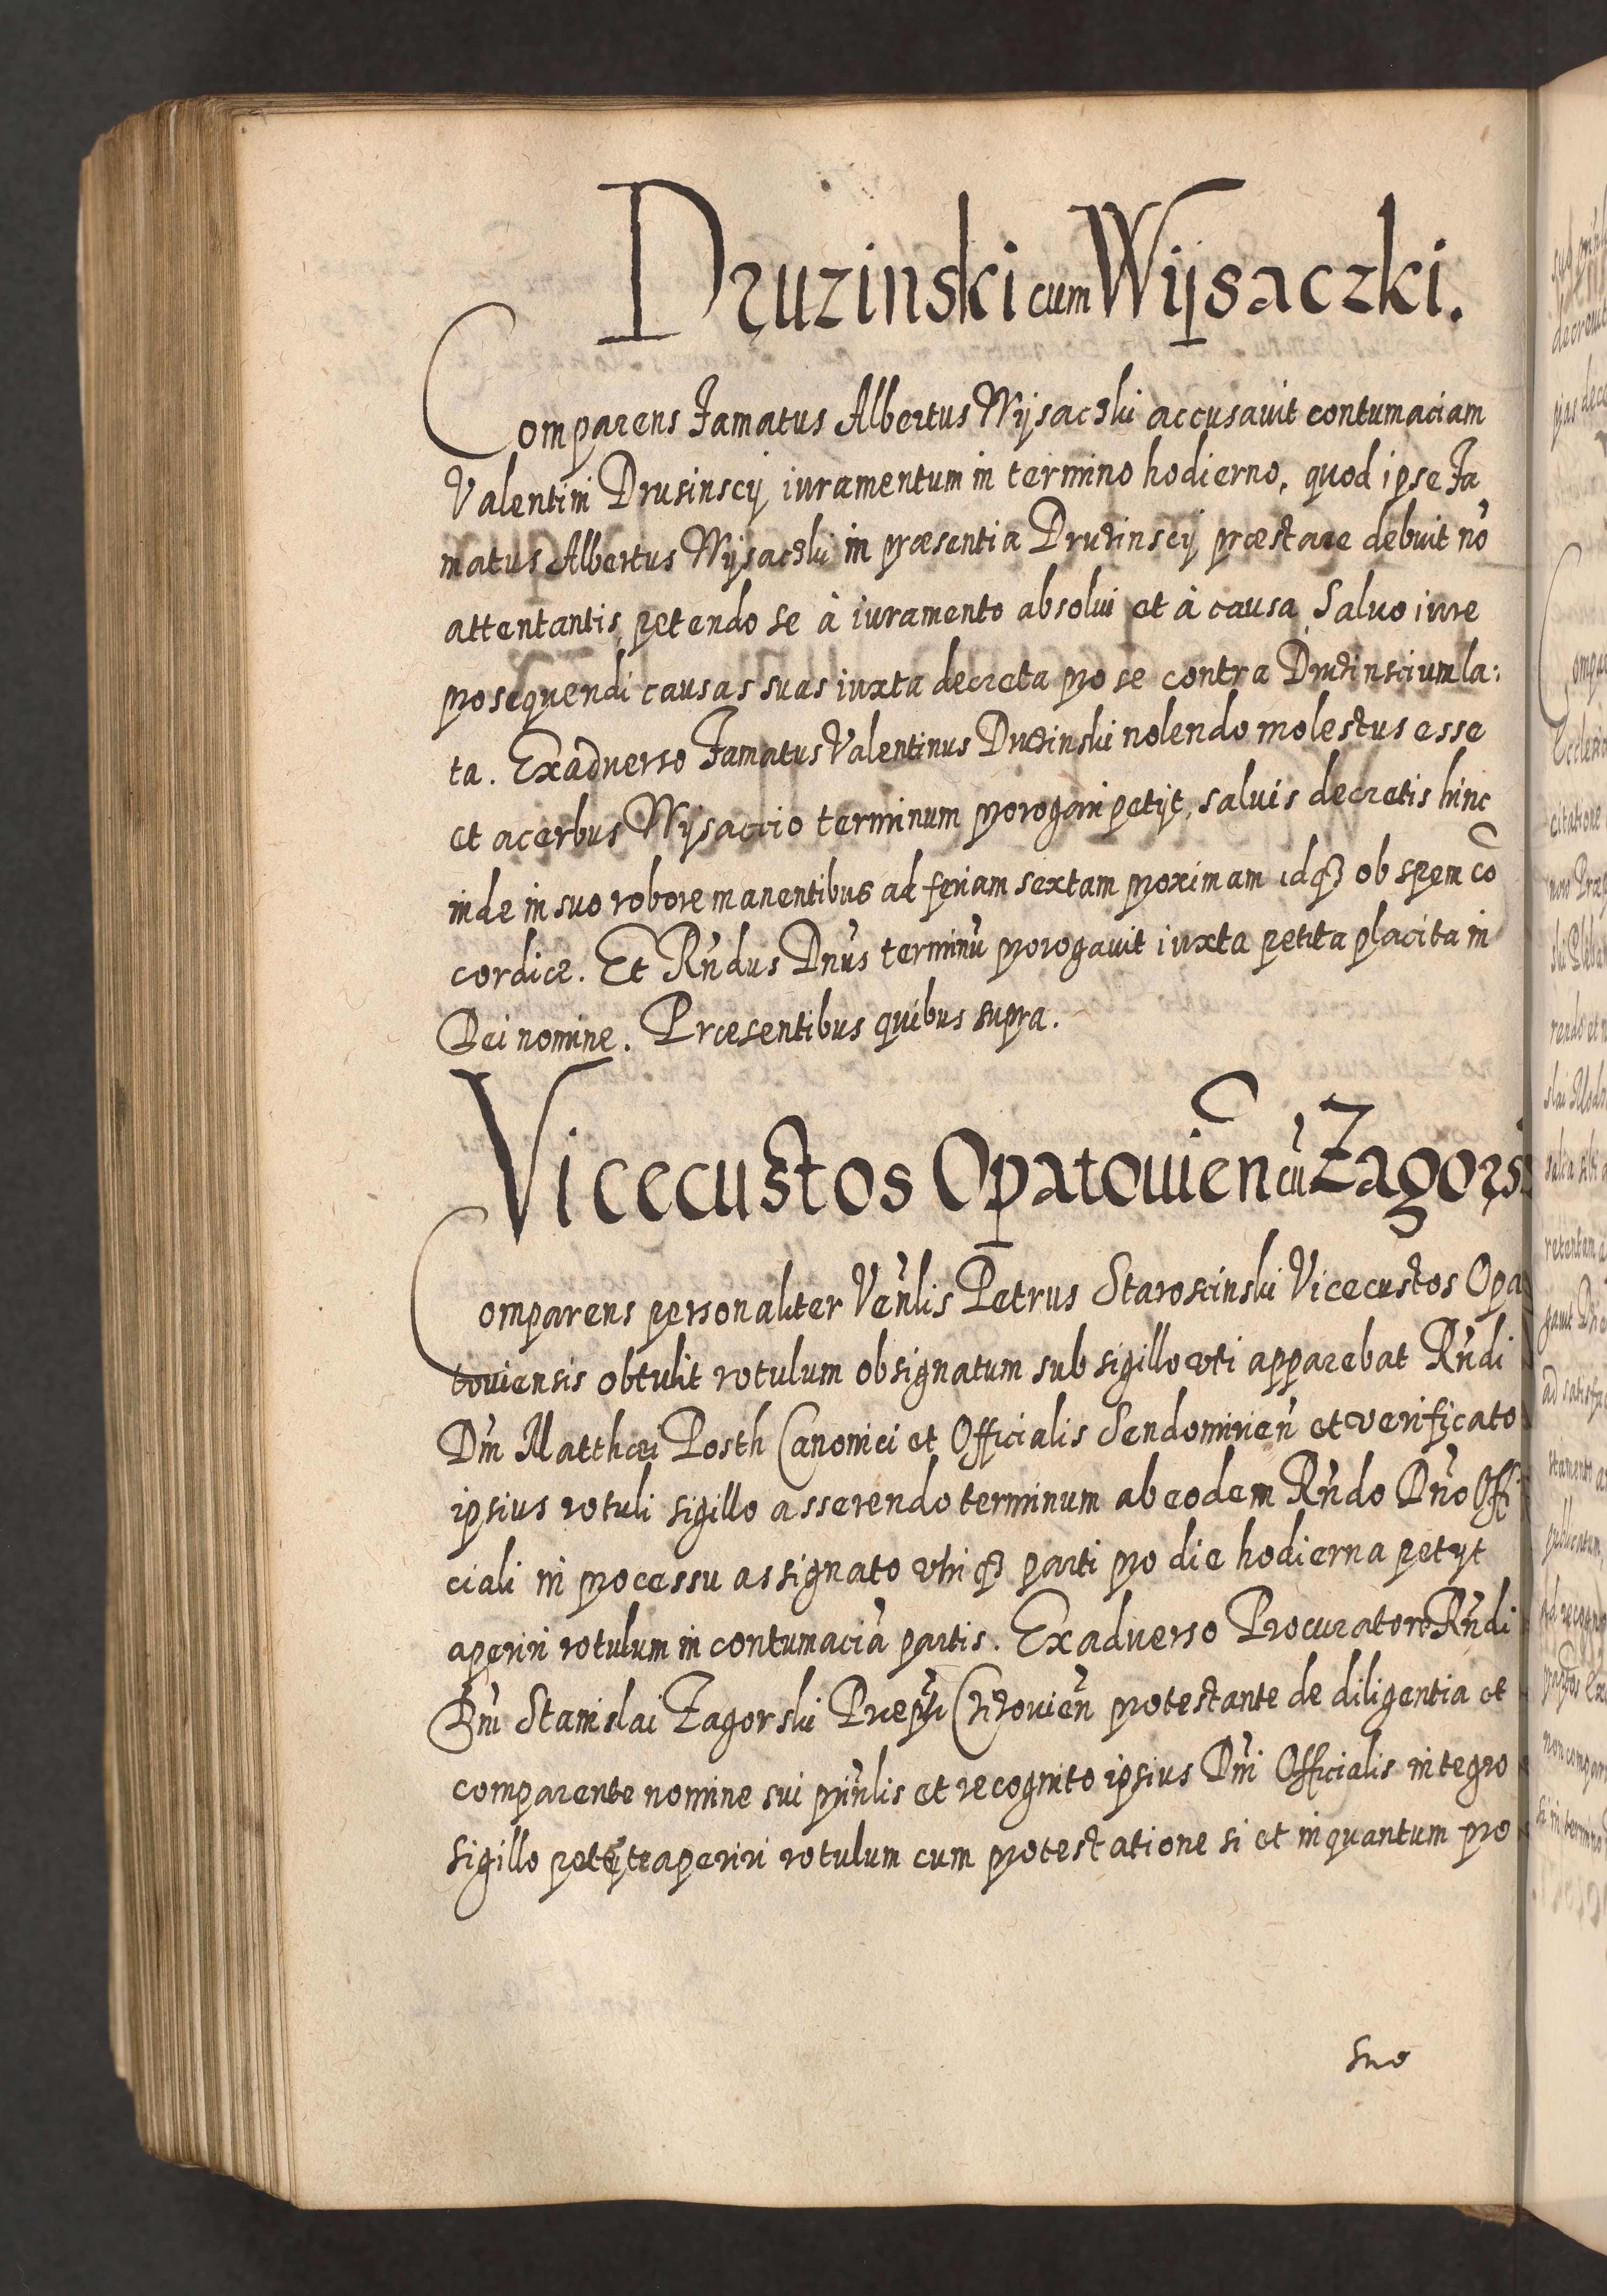 Druzinski cum Wÿsaczki.
Comparens Famatus Albertus Wÿsaczki accusauit contumaciam
Valentini Drusinscÿ iuramentum in termino hodierno, quod ipse Fa
matus Albertus Wÿsaczki in præsentia Druzinscÿ præstare debuit nõ
attentantis, petendo se à iuramento absolui et à causa, Saluo iure
prosequendi causas suas iuxta decreta pro se contra Druzinscium la:
ta. Exaduerso Famatus Valentinus Druzinski nolendo molestus esse
et acerbus Wÿsaccio terminum prorogari petÿt, saluis decretis hinc
inde in suo robore manentibus ad feriam sextam proximam idq₃ ob spem cõ
cordiæ. Et Rñdus Dñus terminũ prorogauit iuxta petita placita in
Dei nomine. Præsentibus quibus supra.
Vicecustos Opatouieñ cũ Zagors
Comparens personaliter Veñlis Petrus Staroscinski Vicecustos Opa
touiensis obtulit rotulum obsignatum sub sigillo vti apparebat Rñdi
Dñi Matthæi Posth Canonici et Officialis Sendomirieñ et verificato
ipsius rotuli sigillo asserendo terminum ab eodem Rñdo Dño Offi
ciali in processu assignato vtriq₃ parti pro die hodierna petÿt
aperiri rotulum in contumaciã partis. Exaduerso Procuratore Rñdi
Dñi Stanislai Zagorski Præpti protestante de diligentia et
comparente nomine sui prinñlis et recognito ipsius Dñi Officialis integro
sigillo petẽte aperiri rotulum cum protestatione si et inquantum pro
suo